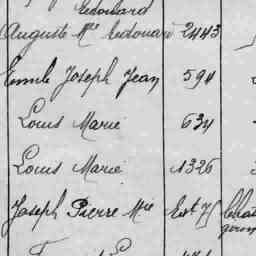 Edouard
Auguste Mel Edouard 2443
Emile Joseph Jean 594
Louis Marie 634
Louis Marie 1326
Joseph Pierre Mie Ext 75